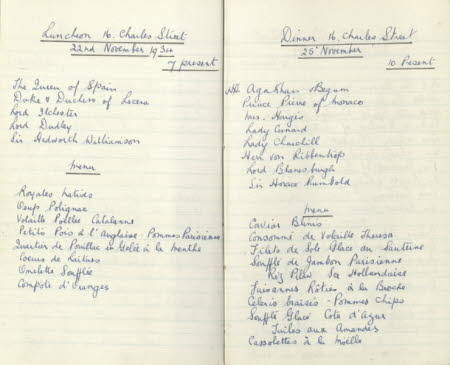 Luncheon 16. Charles Street
22nd November 1934
7 present
The Queen of Spain
Duke & Duchess of Lecera
Lord Ilchester
Lord Dudley
Sir Hedworth Williamson
menu
Royales natives
Oeufs Polignac
Volaille Poêlée Catalanne
Petits Pois à l'Anglaise Pommes Parisienne
Quartier de Pouillac en Gelée à la menthe
Coeurs de Laitues
Omelette Soufflée
Compote d'oranges
Dinner 16. Charles Street
25th November
10 Present
HH Aga Khan & Begum
Prince Pierre of Monaco
Mrs.
Lady Cunard
Lady Churchill
Herr von Ribbentrop
Lord Blanesburgh
Sir Horace Rumbold
menu
Caviar Blinis
Consommé de Volaille Theresa
Filets de Sole Glacé au Sauterne
Soufflé de Jambon Parisienne
Riz Pilaw Sce Hollandaise
Faisannes Rôties à la Broche
Celeris braisés - Pommes Chips
Soufflé Glacé Cote d'Azur
Tuiles aux Amandes
Cassolettes à la Moëlle